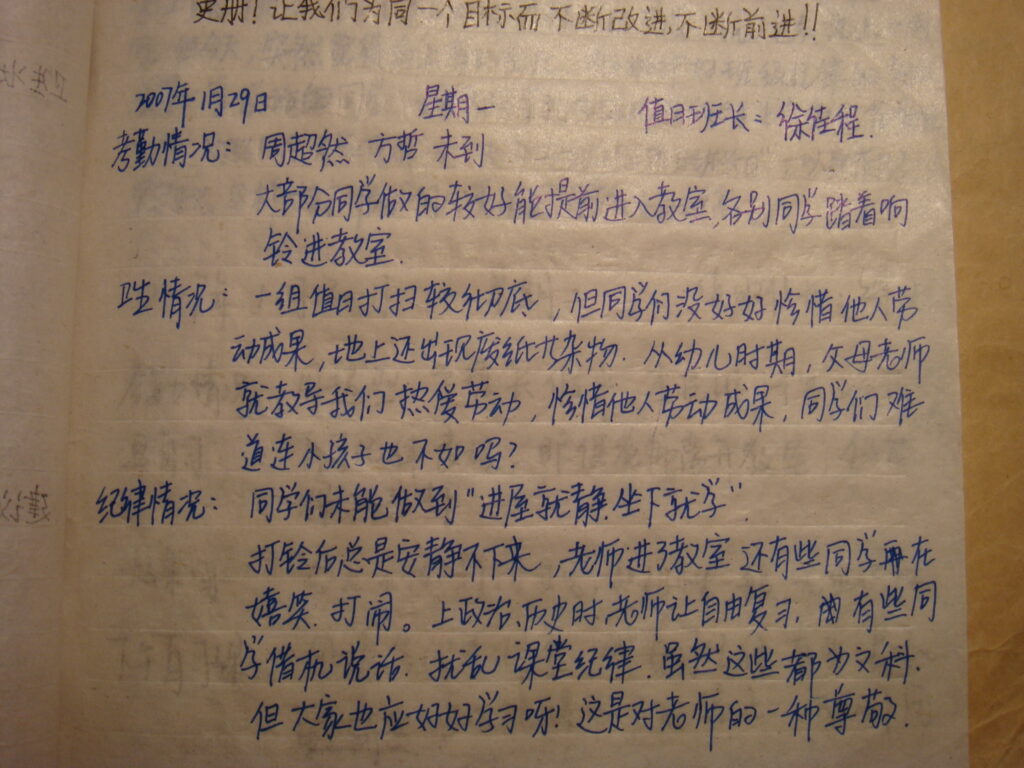 史册！让我们为同一个目标而不断改进,不断前进!!
2007年1月29日 星期一 值日班长：徐佳程.
考勤情况：周超然 方哲 未到
大部分同学做的较好能提前进入教室,各别同学踏着响
铃进教室.
卫生情况：一组值日打扫较彻底，但同学们没好好怜惜他人劳
动成果，地上还出现废纸其杂物. 从幼儿时期，父母老师
就教导我们热爱劳动，怜惜他人劳动成果，同学们难
道连小孩子也不如吗？
纪律情况：同学们未能做到“进屋就静.坐下就学”.
打铃后总是安静不下来，老师进了教室还有些同学再在
嬉笑.打闹。上政治、历史时,老师让自由复习,有些同
学借机说话.扰乱课堂纪律.虽然这些都为文科.
但大家也应好好学习呀！这是对老师的一种尊敬.